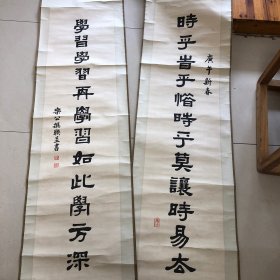 時乎旹乎惜時乎莫讓時易去
庚午新春
學習學習再學習如此學方深
公撰聯書